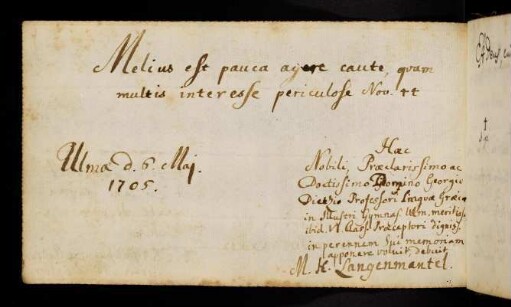 Melius est pauca agere caute, quam
multis interesse periculose Nov. tt
Ulmæ d. 6. Maj.
1705.
Hæc
Nobili, Præclarissimo ac
Doctissimo Domino Georgio
Professori Linguæ Græcæ
in Illustri Gymnas. Ulm. meritiss.
ibid. Præceptori digniss.
in perennem sui memoriam
apponere voluit, debuit
M. H. Langenmantel.